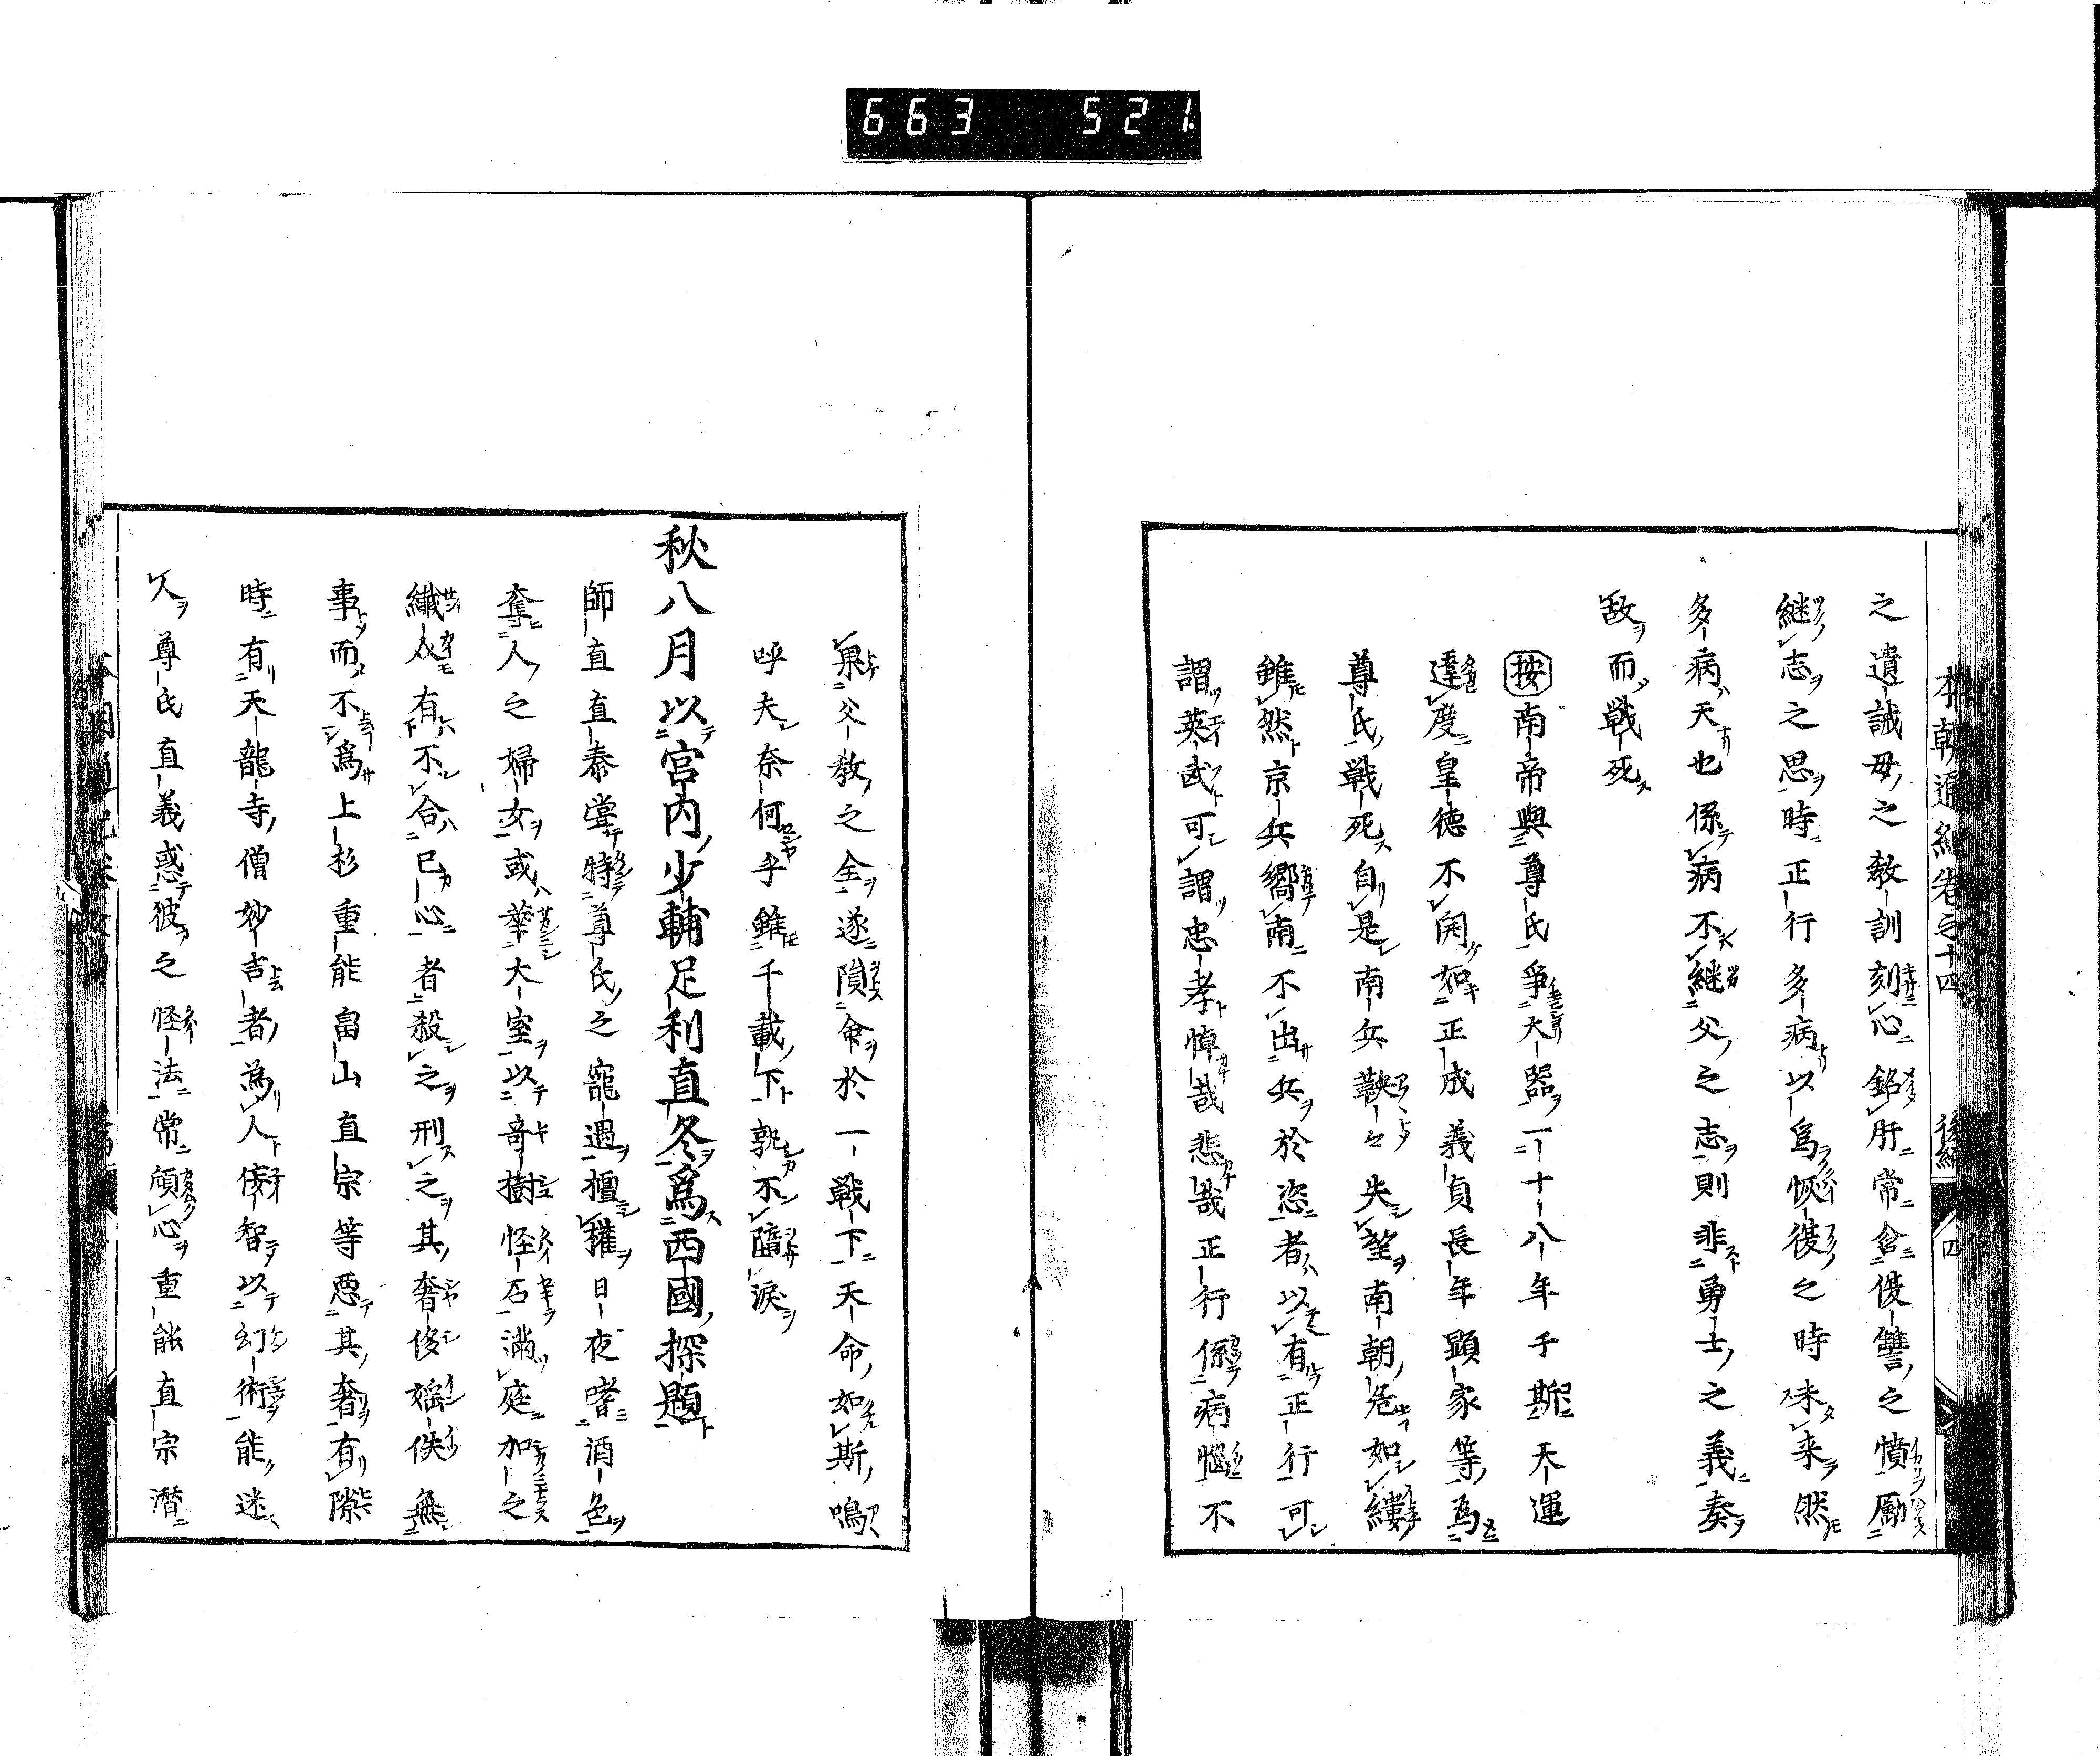 663 521
本朝通紀卷之十四 後編 四
之遺誡毋之教訓刻心銘肝常含復讐之憤勵
継志之思時正行多病以爲恢復之時未来然
多病天也係病不継父之志則非勇士之義奏
敵而戰死
按南帝與尊氏爭大器一十八年于斯天運
違度皇德不開如正成義貞長年顕家等爲
尊氏戰死自是南兵鞅々失望南朝危如縷
雖然京兵嚮南不出兵於恣者以有正行可
謂英武可謂忠孝悼哉悲哉正行係病惱不
果父教之全遂隕命於一戰下天命如斯鳴
呼夫奈何乎雖千載下孰不隨淚
秋八月以宮内少輔足利直冬爲西國探題
師直直泰嘗特尊氏之寵遇擅權日夜嗜酒色
奪人之婦女或華大室以奇樹怪石滿庭加之
纎介有不合己心者殺之刑之其奢侈婬佚無
事而不爲上杉重能畠山直宗等惡其奢有隙
時有天龍寺僧妙吉者為人倿智以幻術能迷
人尊氏直義惑彼之怪法常傾心重能直宗潛